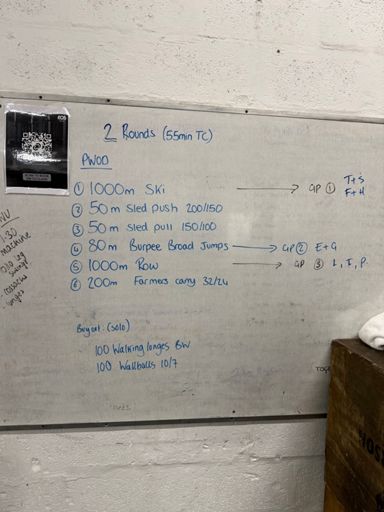 2 Rounds (55min TC)
PWOD
① 1000m Ski → GP ① T+S
F+H
② 50m Sled push 200/150
③ 50m Sled pull 150/100
④ 80m Burpee Broad Jumps → GP ② E+G
⑤ 1000m Row → GP ③ L, I, P.
⑥ 200m Farmers carry 32/24
Buy out. (solo)
100 Walking lunges BW
100 Wallballs 10/7
W/U
1:30
machine